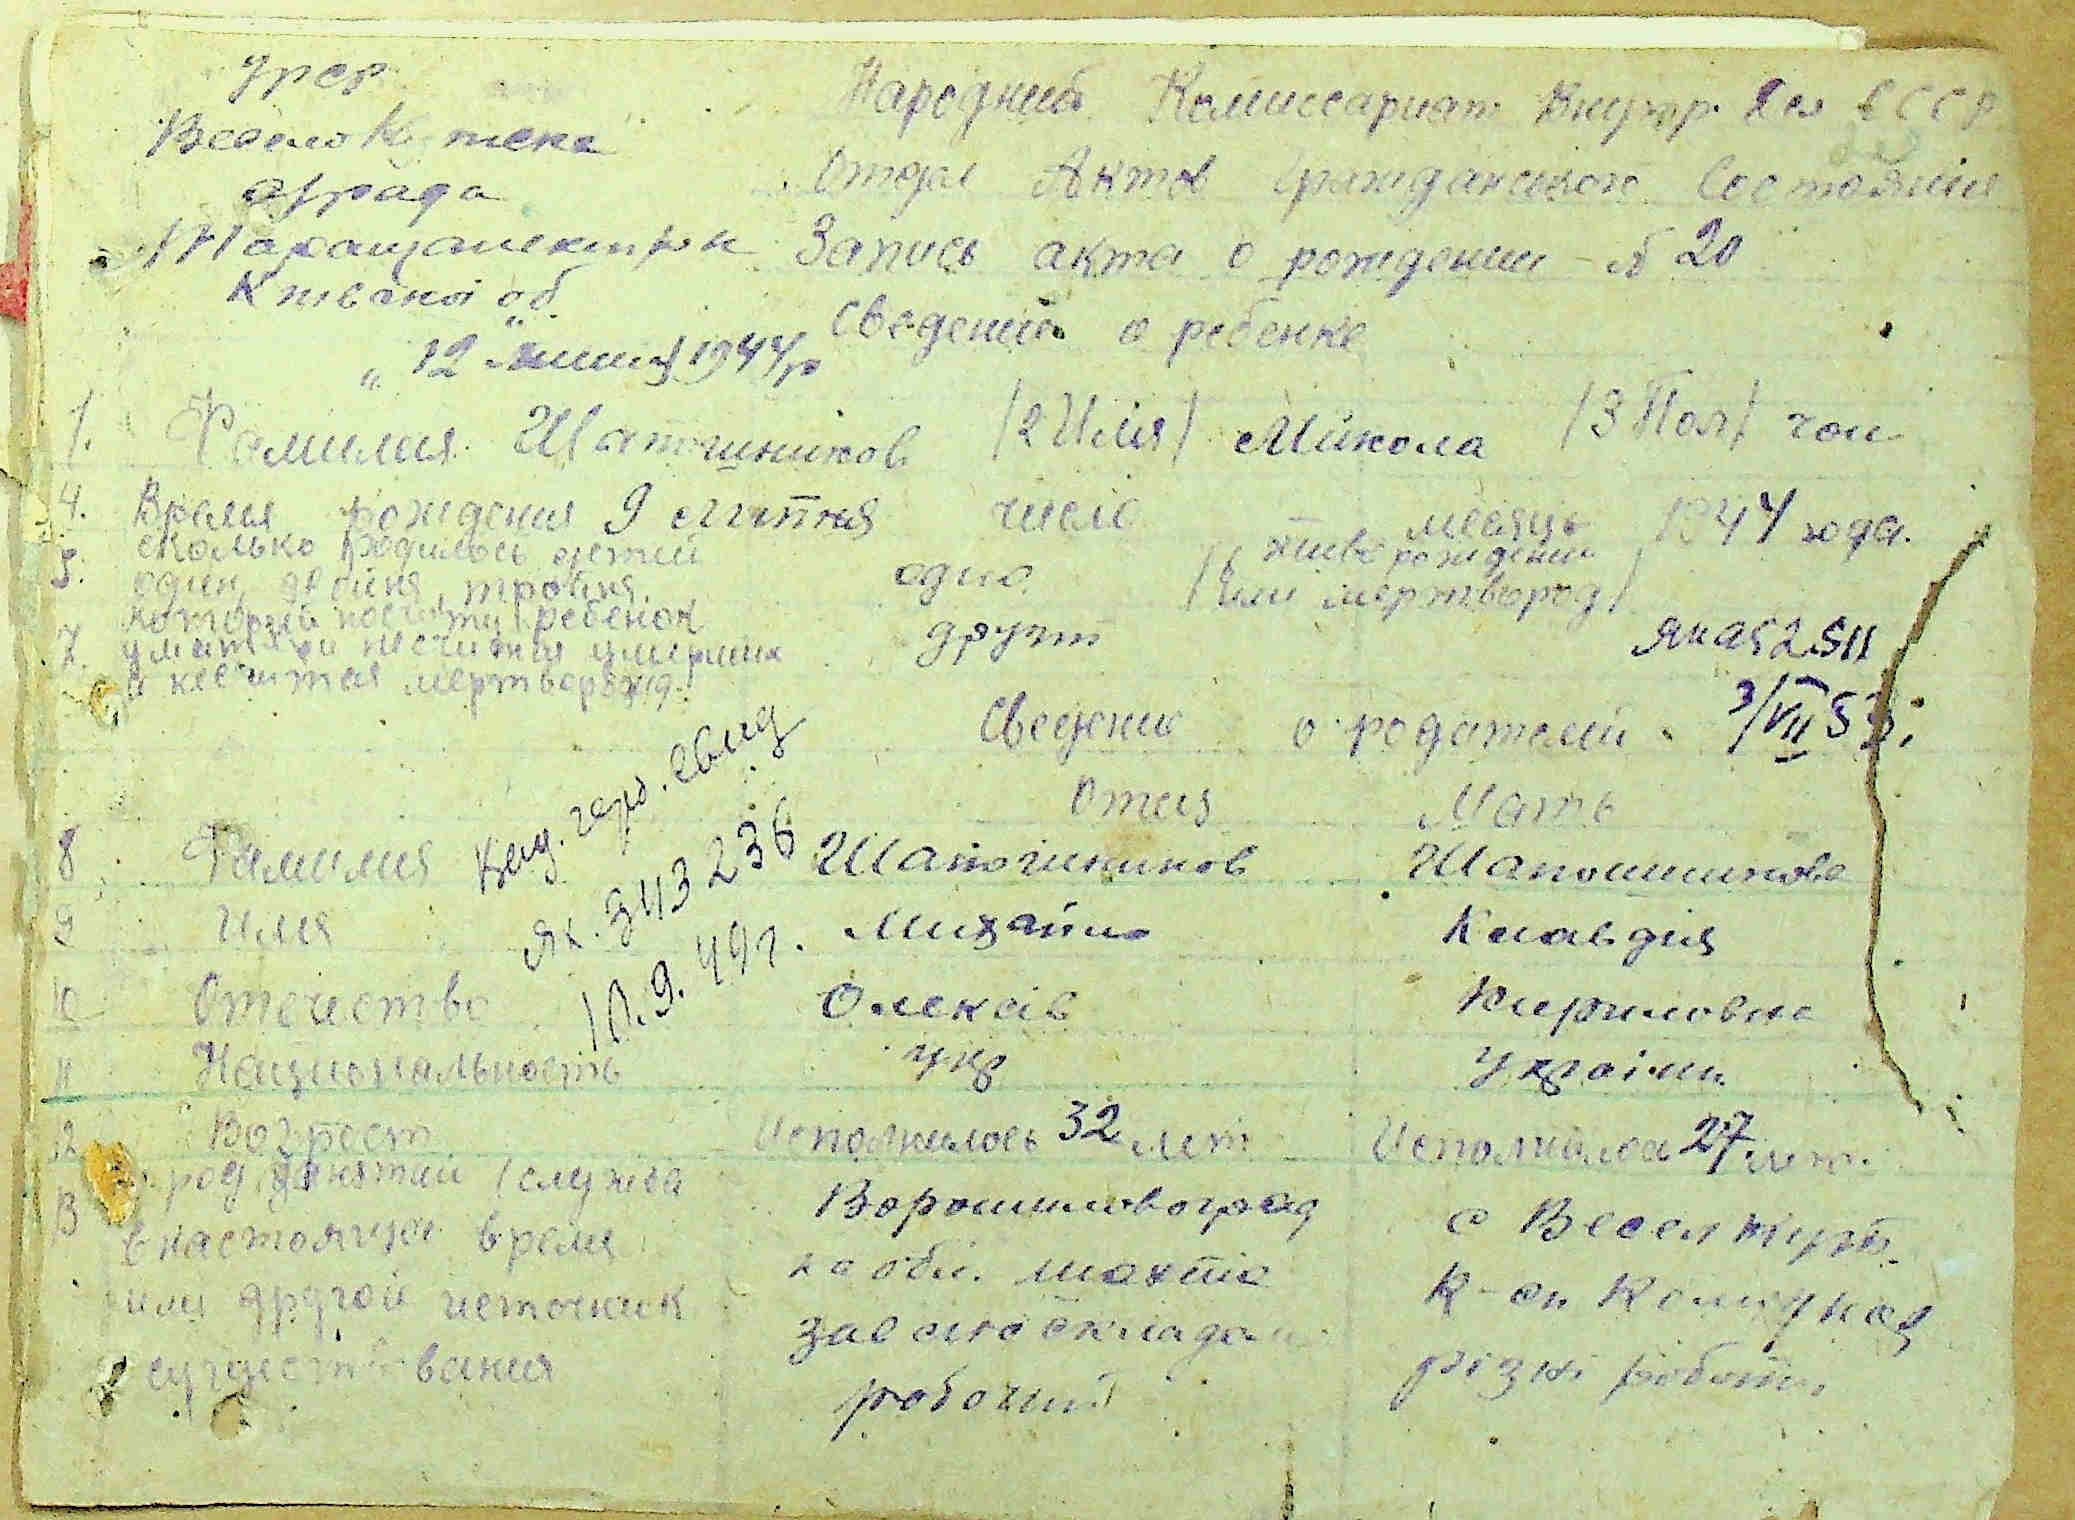 УРСР
Весело Кутська
с/рада
Таращанського р-н
К-ївської об.
"12" липня 1944 р
Народний Комиссариат Внутр. Дел СССР
Отдел Актов Гражданского Состояния
Запись акта о рождении № 20
Сведения о ребенке
1. Фамилия Шапошников /2 Имя/ Микола /3 Пол/ чол
4. Время рождения 9 липня число месяць 1944 года.
5. сколько родилось детей один, двойня, тройня. одно /6 живо рождени или мертвород/
7. который по счету ребенок у матери не считая умерших и не считая мертворожд. друга
3/VII 53
Сведения о родителей
Отец Мать
8 Фамилия Шапошников Шапошникова
9 Имя Михайло Клавдія
10 Отечество Олексів Кириловна
11 Национальность укр Україн.
12 Возраст Исполнилось 32 лет Исполнилось 27 лет.
13 род занятий (служба в настоящее время или другой источник существования
Ворошиловоград
ка обл. шахта
складом
робочий
с Весел Кут
к-сп Колгосп
різні роботи
Выд. герб. свид
ЯК. 343236
10.9.49 г.